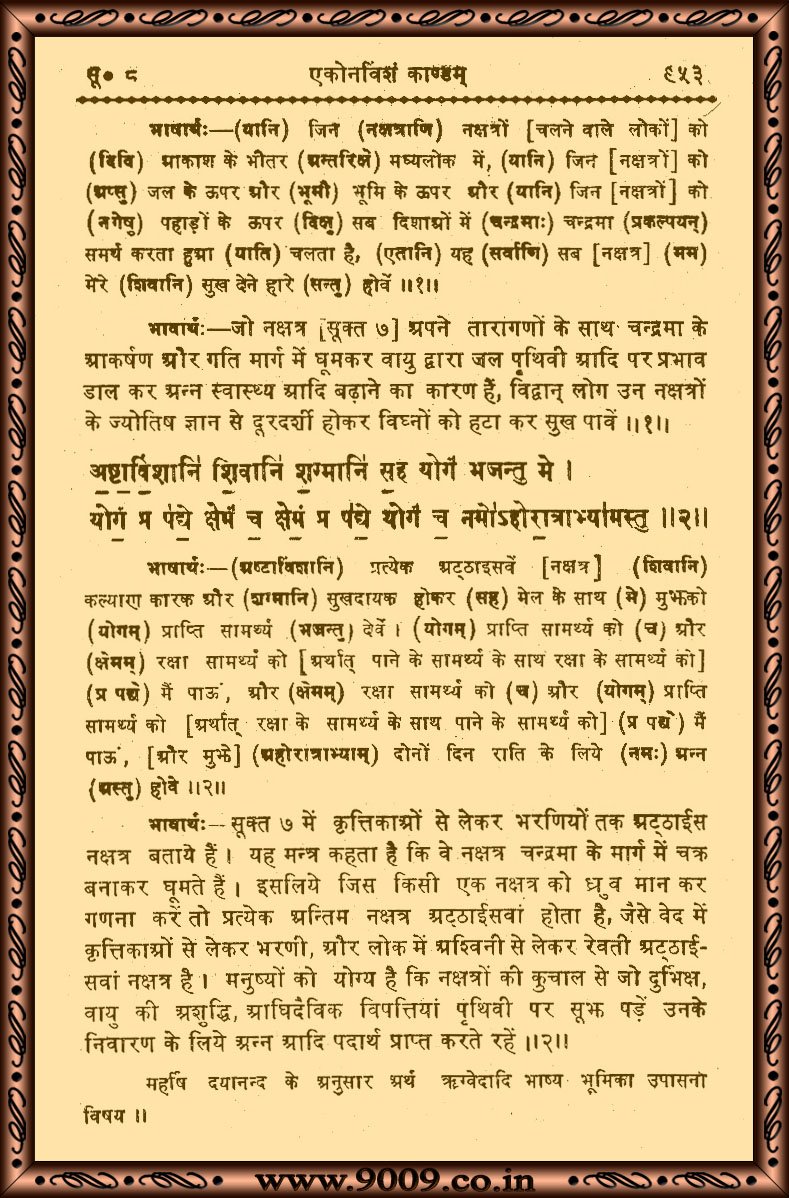 सू० ८ एकोनविंशं काण्डम् ९५३
भाषार्थः—(यानि) जिन (नक्षत्राणि) नक्षत्रों [चलने वाले लोकों] को
(दिवि) आकाश के भीतर (अन्तरिक्षे) मध्यलोक में, (यानि) जिन [नक्षत्रों] को
(अप्सु) जल के ऊपर और (भूमौ) भूमि के ऊपर और (यानि) जिन [नक्षत्रों] को
(नगेषु) पहाड़ों के ऊपर (दिक्षु) सब दिशाओं में (चन्द्रमाः) चन्द्रमा (प्रकल्पयन्)
समर्थ करता हुआ (याति) चलता है, (एतानि) यह (सर्वाणि) सब [नक्षत्र] (मम)
मेरे (शिवानि) सुख देने हारे (सन्तु) होवें ॥१॥
भावार्थः—जो नक्षत्र [सूक्त ७] अपने तारागणों के साथ चन्द्रमा के
आकर्षण और गति मार्ग में घूमकर वायु द्वारा जल पृथिवी आदि पर प्रभाव
डाल कर अन्न स्वास्थ्य आदि बढ़ाने का कारण हैं, विद्वान् लोग उन नक्षत्रों
के ज्योतिष ज्ञान से दूरदर्शी होकर विघ्नों को हटा कर सुख पावें ॥१॥
अ॒ष्टा॒वि॒ंशानि॑ शि॒वानि॑ श॒ग्मानि॑ स॒ह योगं॑ भजन्तु मे ।
योगं॒ प्र प॑द्ये॒ क्षेमं॑ च॒ क्षेमं॒ प्र प॑द्ये॒ योगं॑ च॒ नमो॑ऽहोरा॒त्राभ्या॑मस्तु ॥२॥
भाषार्थः—(अष्टाविंशानि) प्रत्येक अट्ठाइसवें [नक्षत्र] (शिवानि)
कल्याण कारक और (शग्मानि) सुखदायक होकर (सह) मेल के साथ (मे) मुझको
(योगम्) प्राप्ति सामर्थ्य (भजन्तु) देवें । (योगम्) प्राप्ति सामर्थ्य को (च) और
(क्षेमम्) रक्षा सामर्थ्य को [अर्थात् पाने के सामर्थ्य के साथ रक्षा के सामर्थ्य को]
(प्र पद्ये) मैं पाऊं, और (क्षेमम्) रक्षा सामर्थ्य को (च) और (योगम्) प्राप्ति
सामर्थ्य को [अर्थात् रक्षा के सामर्थ्य के साथ पाने के सामर्थ्य को] (प्र पद्ये) मैं
पाऊं, [और मुझे] (अहोरात्राभ्याम्) दोनों दिन राति के लिये (नमः) अन्न
(अस्तु) होवे ॥२॥
भावार्थः—सूक्त ७ में कृत्तिकाओं से लेकर भरणियों तक अट्ठाईस
नक्षत्र बताये हैं । यह मन्त्र कहता है कि वे नक्षत्र चन्द्रमा के मार्ग में चक्र
बनाकर घूमते हैं । इसलिये जिस किसी एक नक्षत्र को ध्रुव मान कर
गणना करें तो प्रत्येक अन्तिम नक्षत्र अट्ठाईसवां होता है, जैसे वेद में
कृत्तिकाओं से लेकर भरणी, और लोक में अश्विनी से लेकर रेवती अट्ठाई-
सवां नक्षत्र है । मनुष्यों को योग्य है कि नक्षत्रों की कुचाल से जो दुर्भिक्ष,
वायु की अशुद्धि, आधिदैविक विपत्तियां पृथिवी पर सूझ पड़ें उनके
निवारण के लिये अन्न आदि पदार्थ प्राप्त करते रहें ॥२॥
महर्षि दयानन्द के अनुसार अर्थ ऋग्वेदादि भाष्य भूमिका उपासना
विषय ॥
www.9009.co.in